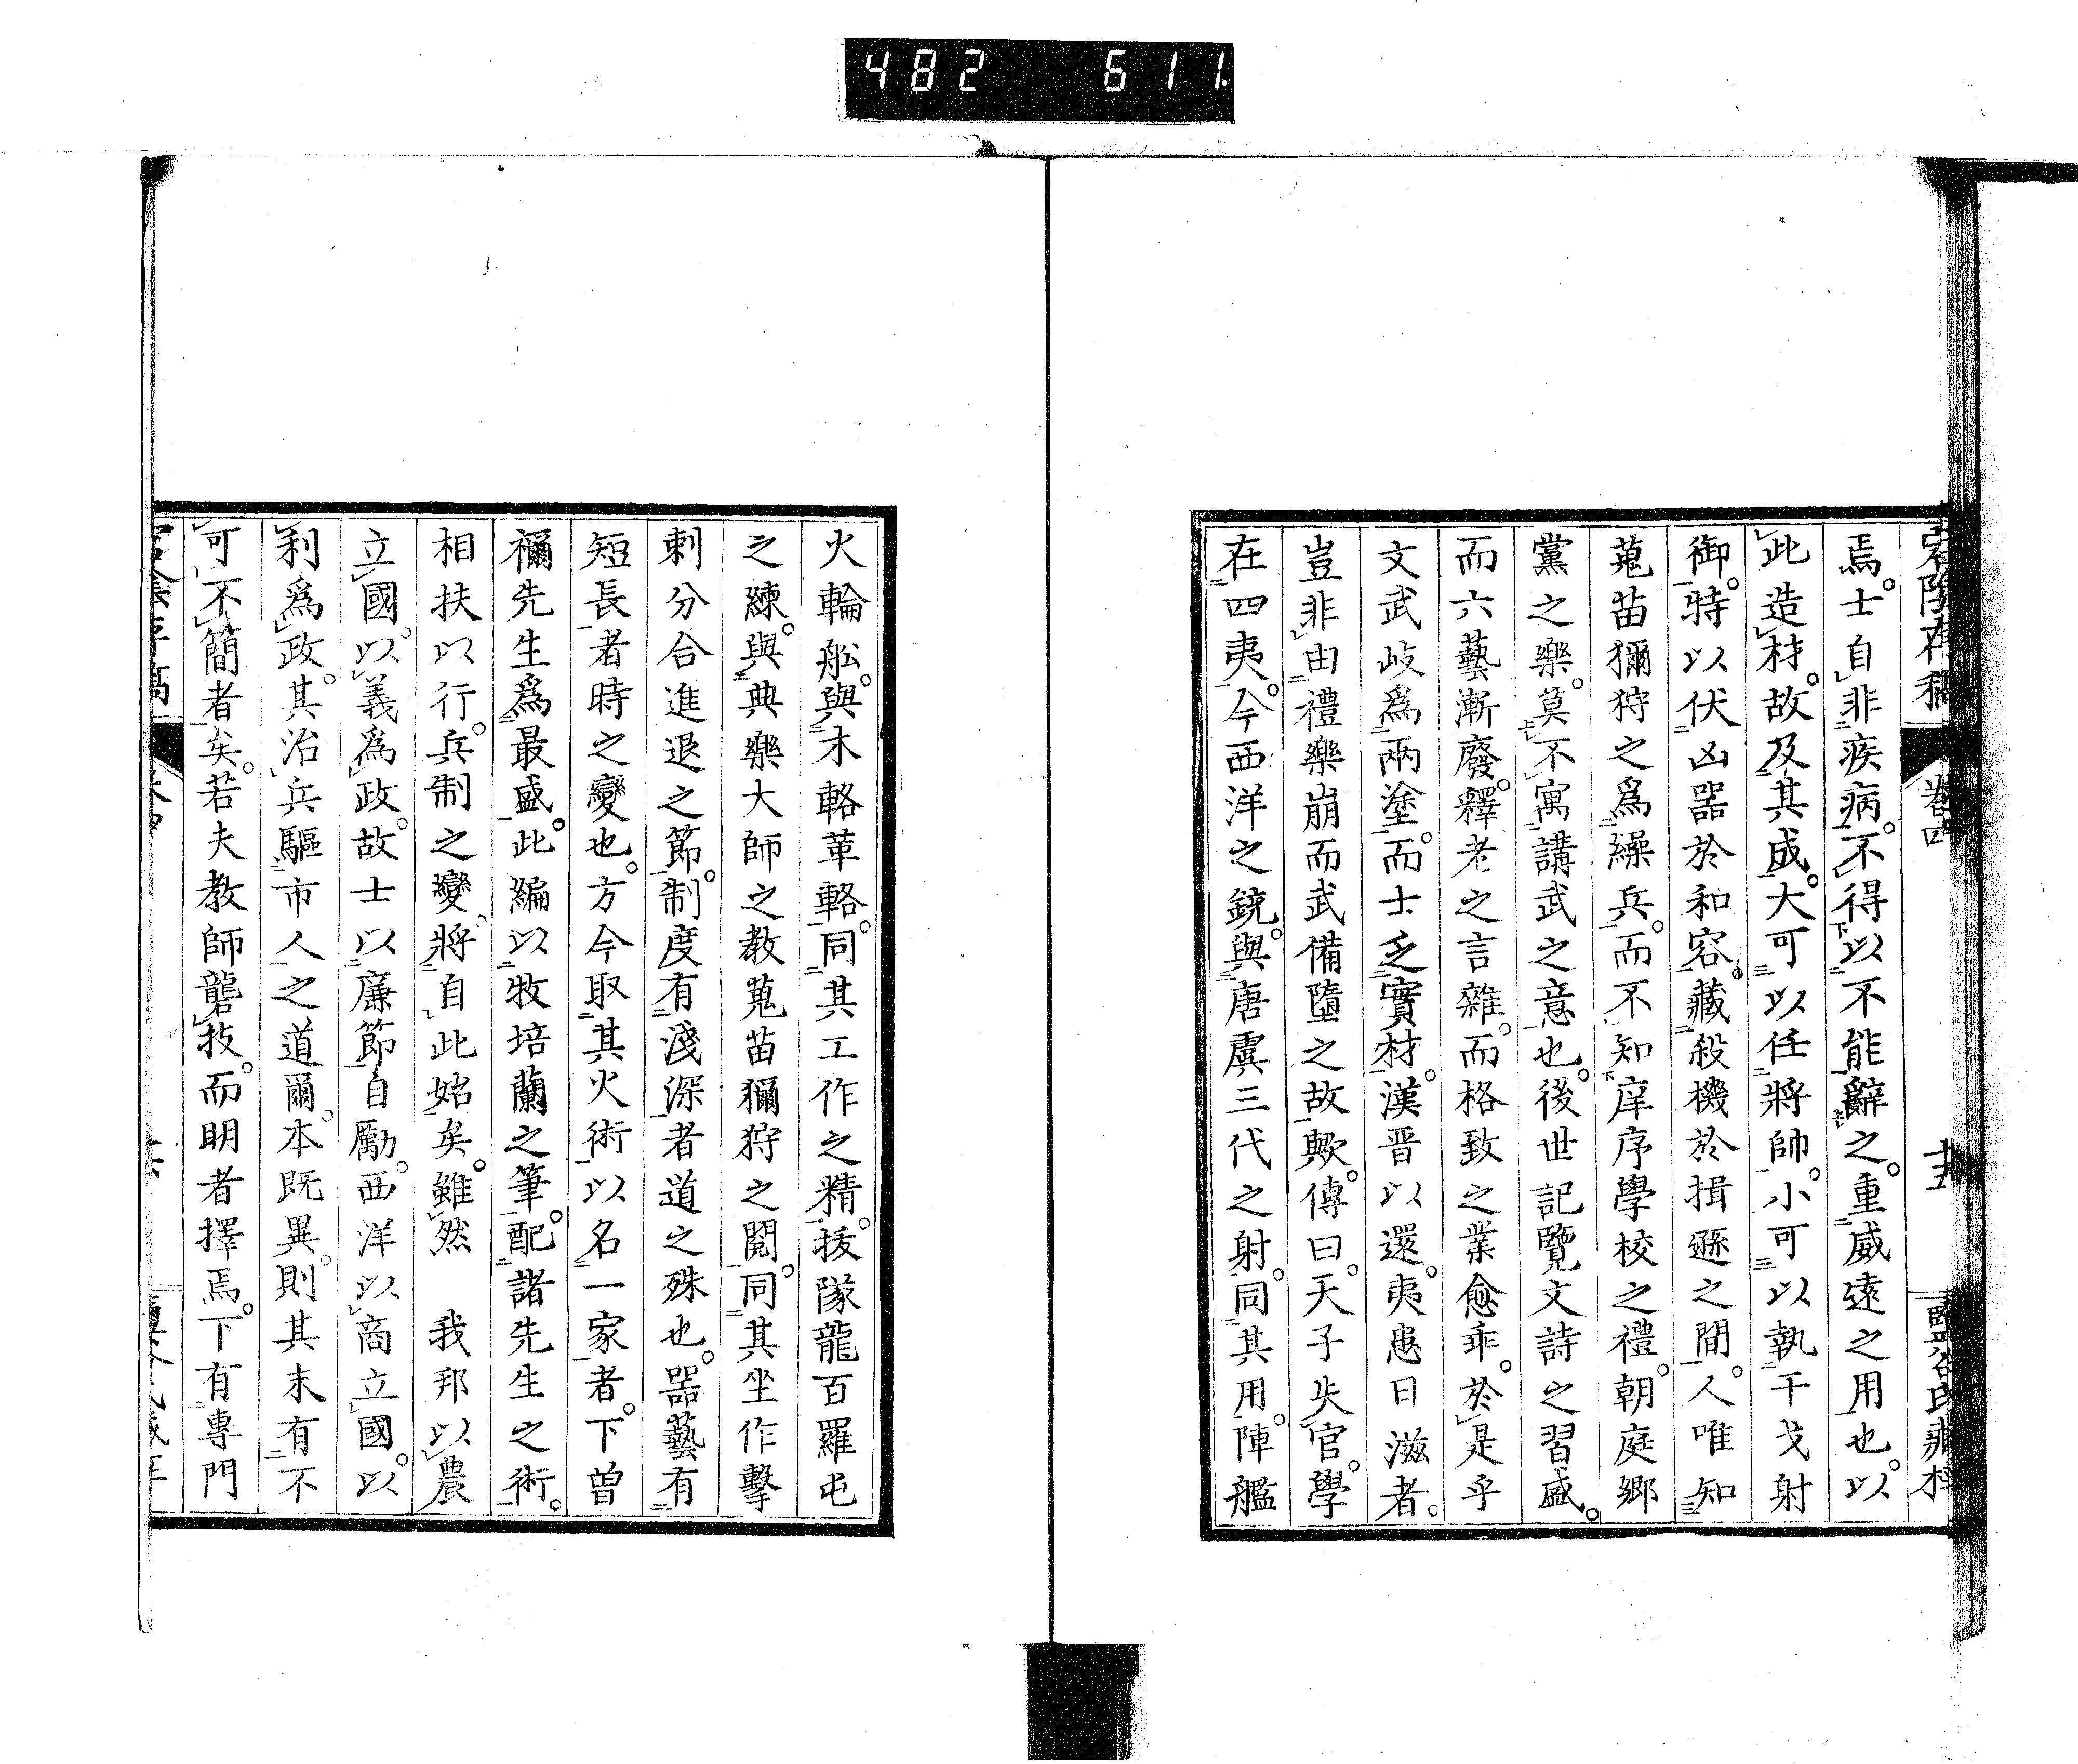 482 611
宕陰存稿 卷四 十五
焉。士自非疾病。不得以不能辭之。重威遠之用也。以
此造材。故及其成。大可以任將帥。小可以執干戈射
御。特以伏凶器於和容。藏殺機於揖遜之間。人唯知
蒐苗獮狩之爲繰兵。而不知庠序學校之禮。朝庭鄉
黨之樂。莫不寓講武之意也。後世記覽文詩之習盛。
而六藝漸廢。釋老之言雜。而格致之業愈乖。於是乎
文武岐爲兩塗。而士乏實材。漢晋以還。夷患日滋者。
豈非由禮樂崩而武備墮之故歟。傳曰。天子失官。學
在四夷。今西洋之銃。與唐虞三代之射。同其用。陣艦
火輪舩。與木輅革輅。同其工作之精。拔隊龍百羅屯
之練。與典樂大師之教蒐苗獮狩之閱。同其坐作擊
刺分合進退之節。制度有淺深者道之殊也。器藝有
短長者時之變也。方今取其火術以名一家者。下曽
禰先生爲最盛。此編以牧培蘭之筆。配諸先生之術。
相扶以行。兵制之變、將自此始矣。雖然 我邦以農
立國。以義爲政。故士以廉節自勵。西洋以商立國。以
利爲政。其治兵驅市人之道爾。本既異。則其末有不
可不簡者矣。若夫教師礱技。而明者擇焉。下有專門